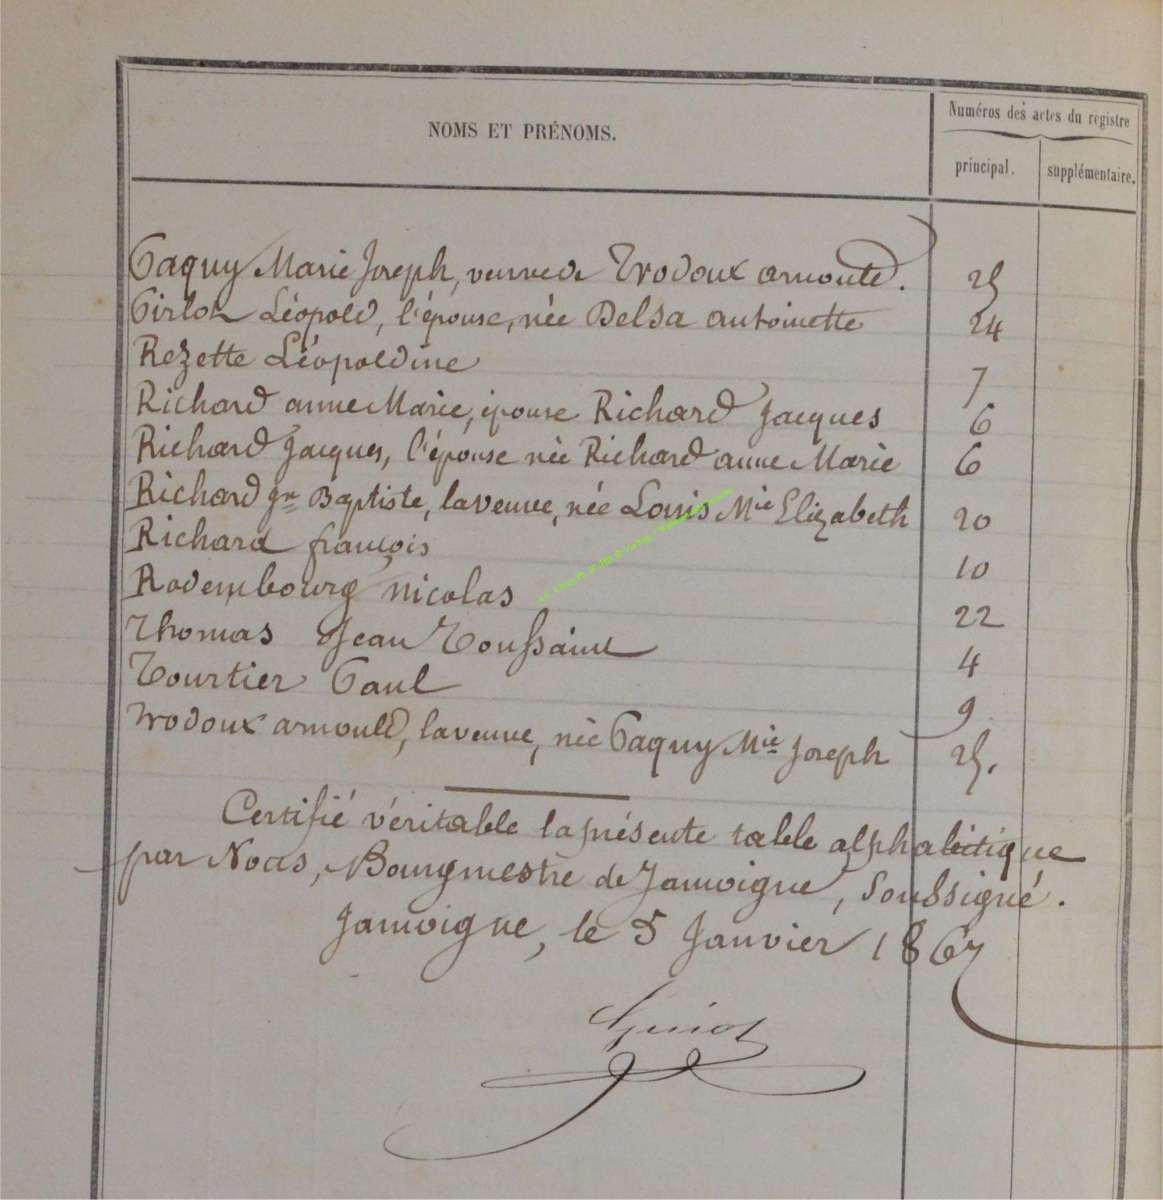 NOMS ET PRÉNOMS.
Numéros des actes du registre
principal. supplémentaire.
Paquy Marie Joseph, veuve de Trodoux arnould. 25
Pirlot Léopold, l'épouse, née Delsa antoinette 24
Rezette Léopoldine 7
Richard anne Marie, épouse Richard Jacques 6
Richard Jacques, l'épouse née Richard anne Marie 6
Richard Jn Baptiste, la veuve, née Louis Mie Elizabeth 20
Richard françois 10
Rodembourg nicolas 22
Thomas Jean Toussaint 4
Tourtier Paul 9
Trodoux arnould, la veuve, née Paquy Mie Joseph 25.
Certifié véritable la présente table alphabétique
par Nous, Bourgmestre de Jamoigne, Soussigné.
Jamoigne, le 5 Janvier 1867